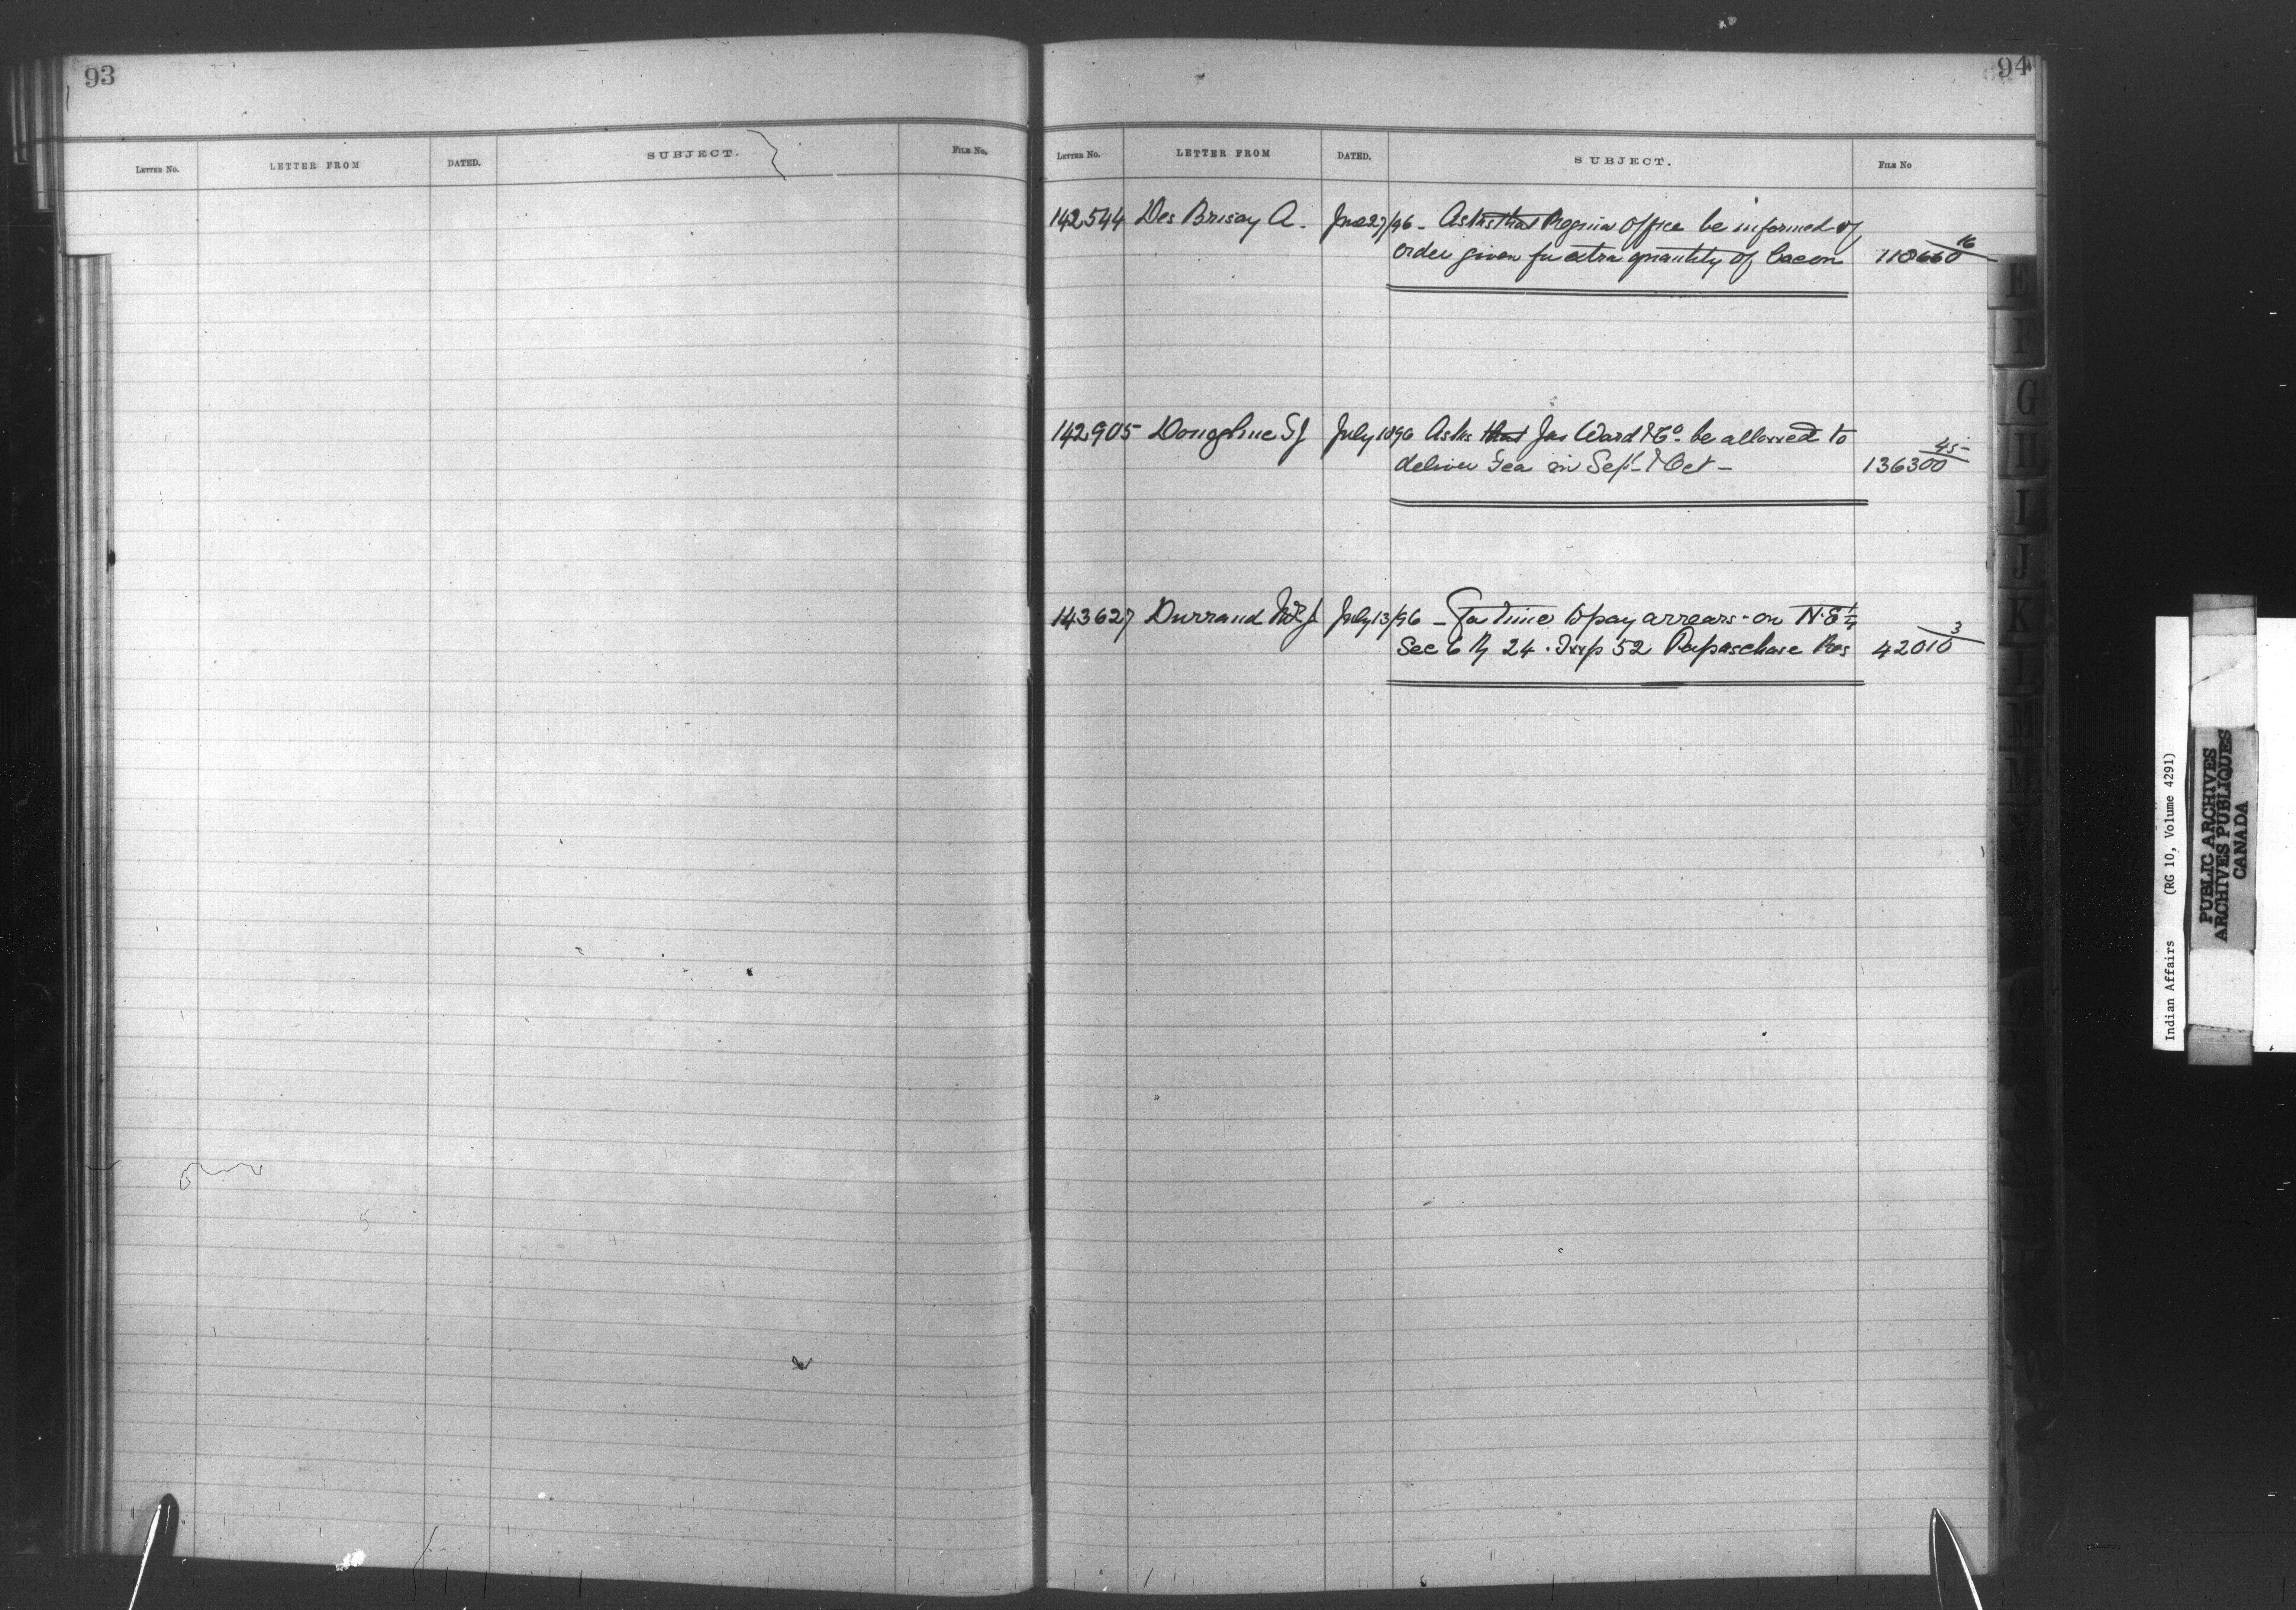 93
LETTER NO. LETTER FROM DATED. SUBJECT. FILE No.
94
LETTER NO. LETTER FROM DATED. SUBJECT. FILE NO
142544 Des Brisay A. June 27/96 - Asks that Regina Office be informed of
order given for extra quantity of bacon 118660 16
142905 Donoghue S J July 10 96 Asks that Jas Ward & Co. be allowed to
deliver Tea in Sept - & Oct - 136300 45
143627 Durrand July 13/96 - For time to pay arrears - on N.E 1/4
Sec 6 R 24 . Twp 52 Papaschase Res 42010 3
E
F
G
I
I
J
K
L
M
M
W
Indian Affairs (RG 10, Volume 4291)
PUBLIC ARCHIVES
ARCHIVES PUBLIQUES
CANADA